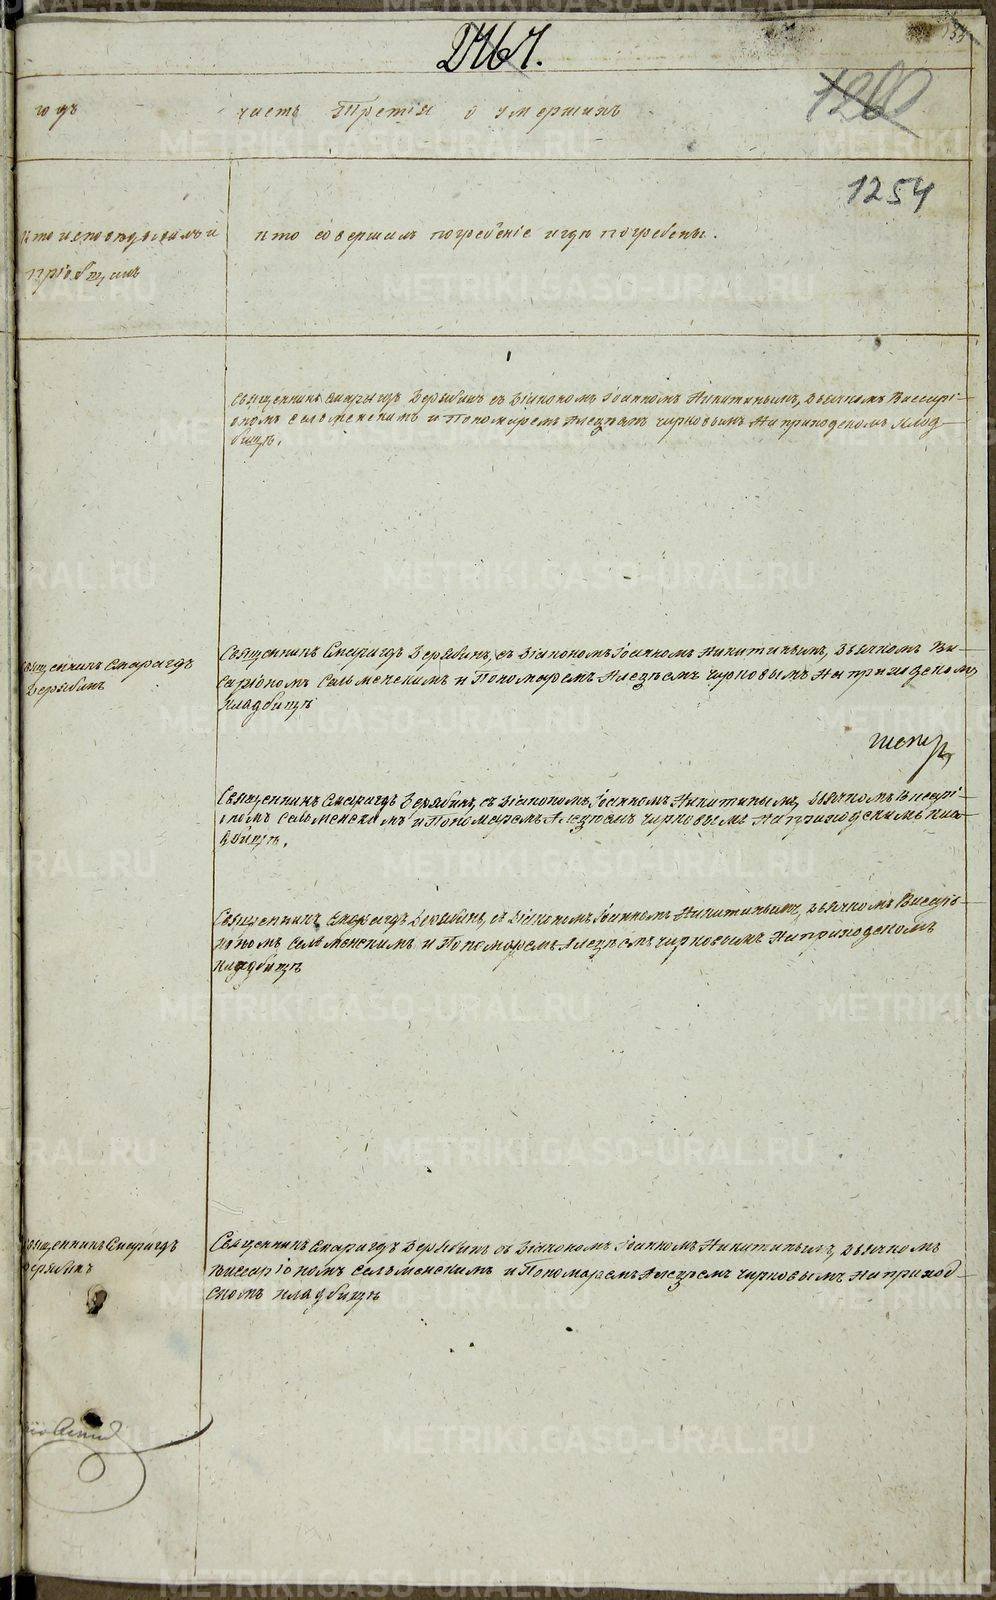 1254
годъ часть Третія о умершихъ
Кто исповѣдывалъ и
пріобщилъ
кто совершалъ погребеніе и гдѣ погребены.
Священникъ Смарагдъ Дерябинъ съ Діакономъ Іоанномъ Никитинымъ, Дьячкомъ Виссарі-
ономъ Сельменскимъ и Пономаремъ Алексѣемъ Чирковымъ На приходскомъ клад-
бищѣ.
Священникъ Смарагдъ
Дерябинъ
Священникъ Смарагдъ Дерябинъ, съ Діакономъ Іоанномъ Никитинымъ, Дьячкомъ Ви-
саріономъ Сельменскимъ и Пономаремъ Алексѣемъ Чирковымъ На приходскомъ
кладбищѣ
Священникъ Смарагдъ Дерябинъ, съ Діакономъ Іоанномъ Никитинымъ, Дьячкомъ Висарі-
ономъ Сельменскимъ и Пономаремъ Алексѣемъ Чирковымъ На приходскимъ клад-
бищѣ.
Священникъ Смарагдъ Дерябинъ, съ Діакономъ Іоанномъ Никитинымъ, Дьячкомъ Висарі-
ономъ Сельменскимъ и Пономаремъ Алексѣемъ Чирковымъ На приходскомъ
кладбищѣ
Священникъ Смарагдъ
Дерябинъ
Священникъ Смарагдъ Дерябинъ съ Діакономъ Іоанномъ Никитинымъ, Дьячкомъ
Виссаріономъ Сельменскимъ и Пономаремъ Алексѣемъ Чирковымъ На приход-
скомъ кладбищѣ
METRIKI.GASO-URAL.RU